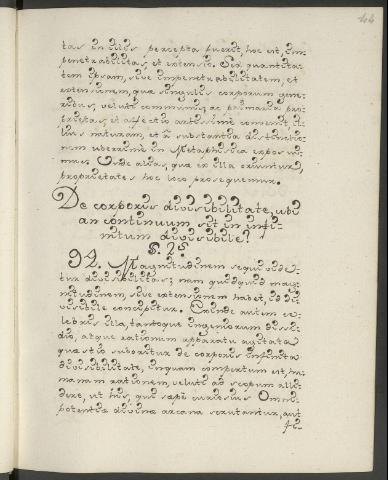 44
tas in illis percepta fuerit, hoc est, im-
penetrabilitas, et extensio. Sed quantita-
tem ipsam, sive impenetrabilitatem, et
extensionem, quae singulis corporum gene-
ribus, veluti communis, ac primaria pro-
prietas, et affectio arctissime convenit, il-
lius naturam, et a substantia distinctio-
nem uberrime in Metaphysica exposui-
mus. Unde alias, quae ex illa oriuntur,
proprietates hoc loco prosequemur.
De corporis divisibilitate, ubi
an continuum sit in infi-
nitum divisibile?
§. 2.
92. Magnitudinem sequi vide-
tur divisibilitas; nam quidquid mag-
nitudinem, sive extensionem habet, id di-
visibile concipitur. Exinde autem ce-
lebris illa, tantoque ingeniorum dissi-
dio, atque rationum apparatu agitata
quaestio suboritur de corporis infinita
divisibilitate, in quam compertum est, hu-
manam rationem, veluti ad scopum alli-
dere, ut his, qui saepe curiosius Omni-
potentiae divinae arcana scrutantur, aut